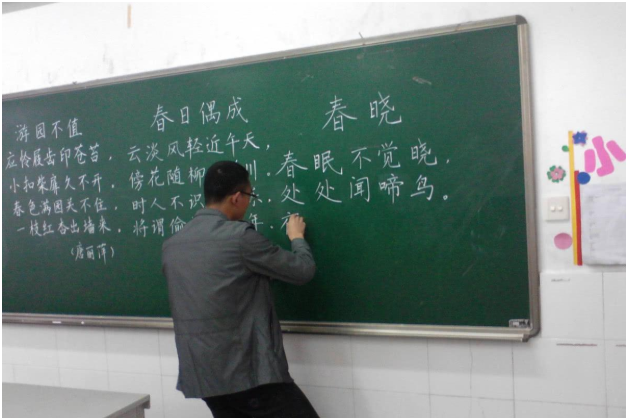 游园不值
应怜履齿印苍苔，
小扣柴扉久不开，
春色满园关不住，
一枝红杏出墙来。
(唐丽萍)
春日偶成
云淡风轻近午天，
傍花随柳 川.
时人不识
将谓偷 年.
春晓
春眠不觉晓，
处处闻啼鸟。
小